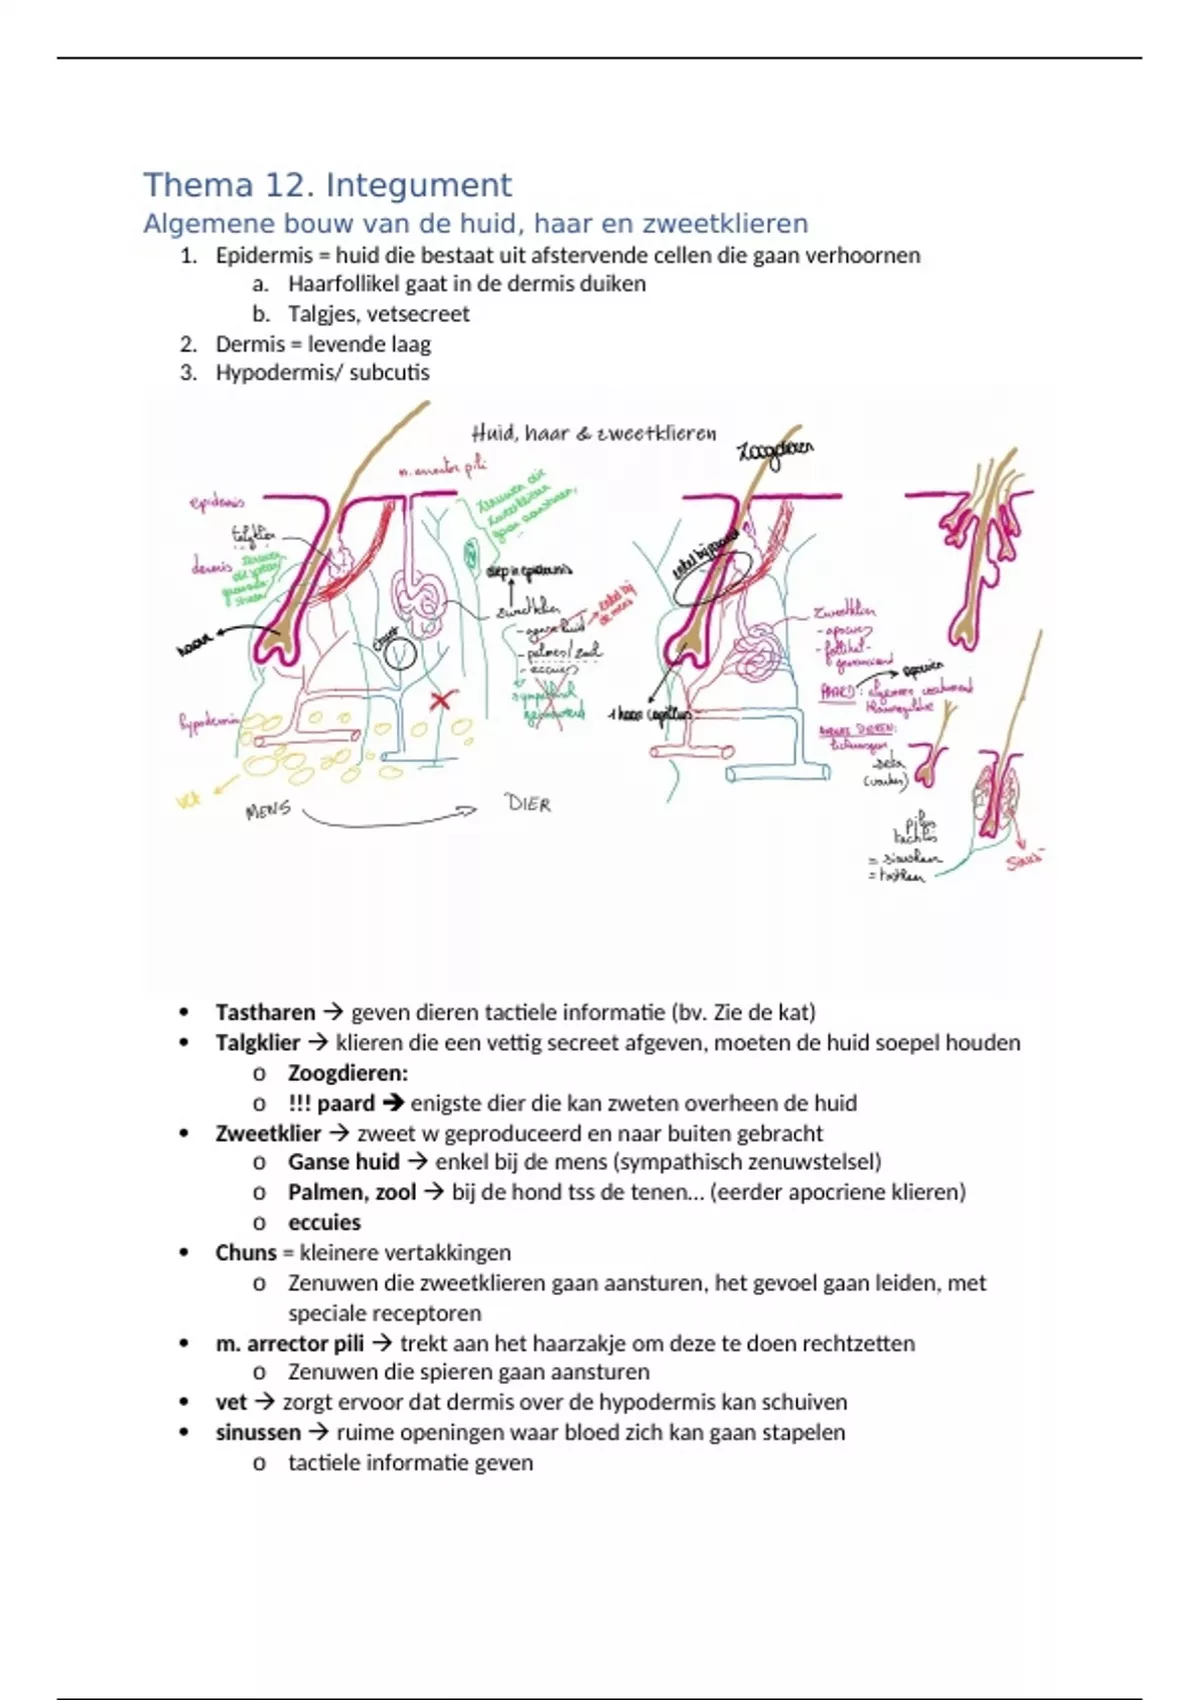 Thema 12. Integument
Algemene bouw van de huid, haar en zweetklieren
1. Epidermis = huid die bestaat uit afstervende cellen die gaan verhoornen
a. Haarfollikel gaat in de dermis duiken
b. Talgjes, vetsecreet
2. Dermis = levende laag
3. Hypodermis/ subcutis
Huid, haar & zweetklieren
Zoogdieren
m. arrector pili
epidermis
talgklier
dermis
zenuwen die zweetklieren gaan aansturen,
diep in epidermis
zweetklier
enkel bij de mens
- palmes/zool
- eccuies
sympathisch
hypodermis
1 haar capillus
zweetklier
- apocries
PAARD:
seta
(varken)
vet
MENS
DIER
pilus
tactilis
= sinushaar
= tasthaar
sinus
• Tastharen → geven dieren tactiele informatie (bv. Zie de kat)
• Talgklier → klieren die een vettig secreet afgeven, moeten de huid soepel houden
o Zoogdieren:
o !!! paard → enigste dier die kan zweten overheen de huid
• Zweetklier → zweet w geproduceerd en naar buiten gebracht
o Ganse huid → enkel bij de mens (sympathisch zenuwstelsel)
o Palmen, zool → bij de hond tss de tenen… (eerder apocriene klieren)
o eccuies
• Chuns = kleinere vertakkingen
o Zenuwen die zweetklieren gaan aansturen, het gevoel gaan leiden, met
speciale receptoren
• m. arrector pili → trekt aan het haarzakje om deze te doen rechtzetten
o Zenuwen die spieren gaan aansturen
• vet → zorgt ervoor dat dermis over de hypodermis kan schuiven
• sinussen → ruime openingen waar bloed zich kan gaan stapelen
o tactiele informatie geven